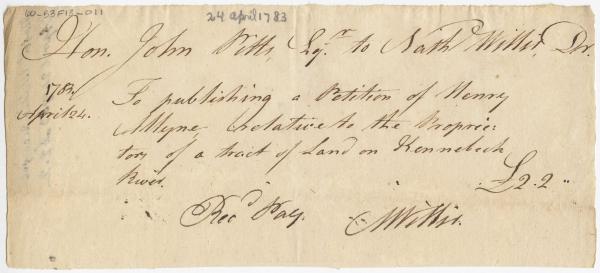 60-53F13-011
24 april 1783
Hon. John Pitts, Esqr. to Nathl. Willis, Dr.
1783.
April 24. To publishing a Petition of Henry
Alline relative to the Proprie=
tors of a tract of Land on Kennebeck
River. £2.2"
Recd. Pay. N Willis.